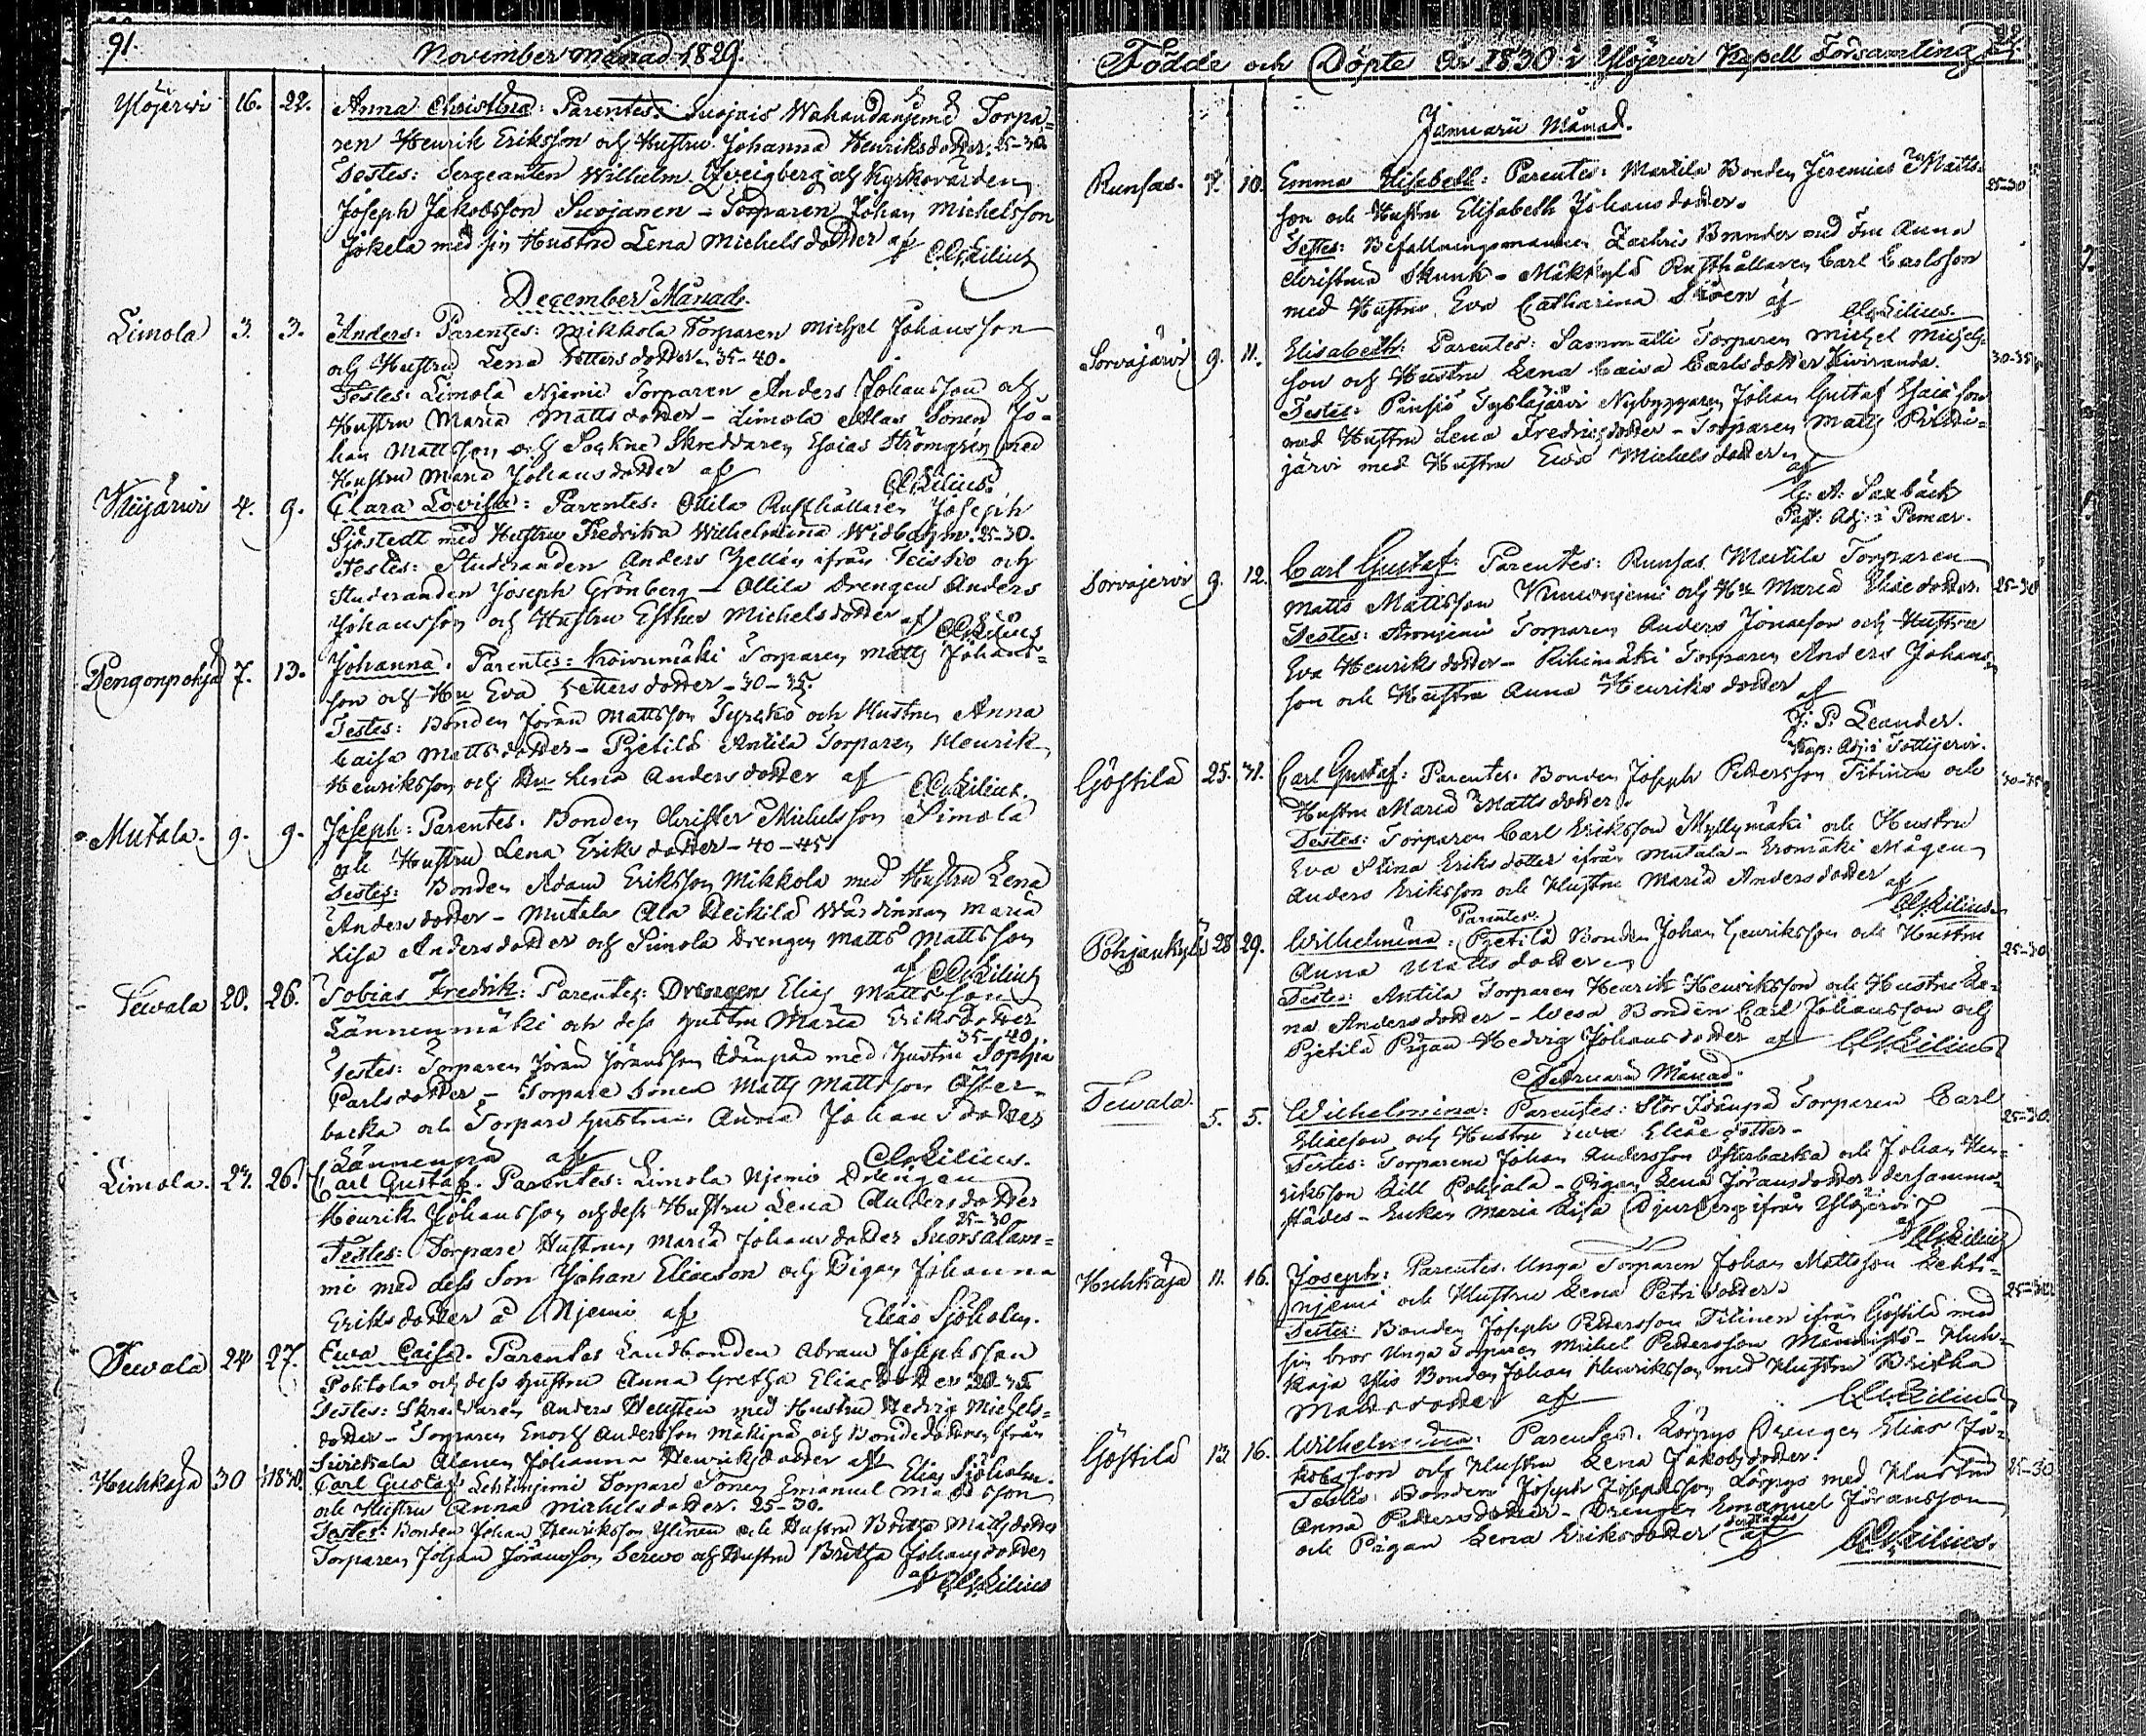 91.
November Månad 1829.
Ylöjerwi 16. 22. Anna Christina: Parentes: Suojais Wahandanjemi Torpa=
ren Henrik Eriksson och Hustru Johanna Henriksdotter. 25-30.
Testes: Sergeanten Wilhelm Qveigberg och Kyrkovärden
Joseph Jakobsson Suojanen - Torparen Johan Michelsson
Jokela med sin Hustru Lena Michelsdotter af
December Månad.
Limola 3. 3. Anders: Parentes: Mikkola Torparen Michel Johansson
och Hustru Lena Pettersdotter. 35-40.
Testes: Limola Njemi Torparen Anders Johansson och
Hustru Maria Mattsdotter - Limola Alas Sonen Jo=
han Mattsson och Sockne Skreddaren Esaias Strömgren med
Hustru Maria Johansdotter af
4. 9. Clara Lovisa: Parentes: Ollila Rusthållaren Joseph
Sjöstedt med Hustru Fredrika Wilhelmina Widbohm. 25-30.
Testes: Studeranden Anders Hellén ifrån Teisko och
Studeranden Joseph Grönberg - Ollila Drengen Anders
Johansson och Hustru Esther Michelsdotter af
Pengonpohja 7. 13. Johanna: Parentes: Koiwumäki Torparen Matts Johans=
son och Hu Eva Pettersdotter - 30-35.
Testes: Bonden Jöran Mattsson Tyrskö och Hustru Anna
Caisa Mattsdotter - Pjetilä Antila Torparen Henrik
Henriksson och Hu Lena Andersdotter af
Mutala. 9. 9. Joseph: Parentes: Bonden Christer Michelsson Simola
och Hustru Lena Eriksdotter - 40-45.
Testes: Bonden Adam Eriksson Mikkola med Hustru Lena
Andersdotter - Mutala Ala Heikilä Wärdinnan Maria
Lisa Andersdotter och Simola Drengen Matts Mattsson
af
Tewala 20. 26. Tobias Fredrik: Parentes: Drengen Elias Mattsson
Lännenmäki och dess Hustru Maria Eriksdotter
35-40.
Testes: Torparen Jöran Jöransson Idänpää med Hustru Sophia
Carlsdotter - Torpare Sonen Matts Mattsson Öster=
backa och Torpare Hustrun Anna Johansdotter
Lännenpä af
Limola. 24. 26. Carl Gustaf. Parentes: Limola Njemis Drengen
Henrik Johansson och dess Hustru Lena Andersdotter
25-30.
Testes: Torpare Hustrun Maria Johansdotter Suorsalam=
mi med dess Son Johan Eliaeson och Pigan Johanna
Eriksdotter å Njemi af Elias Sjöholm.
Tewala 24 27. Ewa Caisa. Parentes Landbonden Abram Josephsson
Pohtola och dess Hustru Anna Gretha Eliaedotter
Testes: Skreddaren Anders Hensten med Hustru Hedvig Michels=
dotter - Torparen Enoch Andersson Mäkipä och Bondedottren från
Suickala Alanen Johanna Henriksdotter af Elias Sjöholm.
Huhkaja 30 1/1830. Carl Gustaf: Lehtinjemi Torpare Sonen Emanuel Mattsson
och Hustru Anna Michelsdotter. 25-30.
Testes: Bonden Johan Henriksson Ylinen och Hustru Britha Mattsdotter
Torparen Johan Jöransson Serwo och Hustru Britha Johansdotter
af
Födde och Döpte År 1830 i Ylöjerwi Kapell Församling
Januarii Månad.
Runsas. 7. 10. Emma Elisabeth: Parentes: Martila Bonden Jeremias Matts= 25-30
son och Hustru Elisabeth Johansdotter.
Testes: Befallningsmannen Zachris Brander med Fru Anna
Christina Skunk - Mäkkylä Rusthållaren Carl Carlsson
med Hustru Eva Catharina af
Sorvajärvi 9. 11. Elisabeth: Parentes: Sammatti Torparen Michel Michels= 30-35
son och Hustru Lena Caisa Carlsdotter Kiviranda.
Testes: Pinsiö Nybyggaren Johan Gustaf Esaiason
med Hustru Lena Fredricsdotter - Torparen Matts
järvi med Hustru Ewa Michelsdotter
af
G: A: Saxbäck
Past: Adj: i Pomar.
Sorvajerwi 9. 12. Carl Gustaf: Parentes: Runsas Martila Torparen
Matts Mattsson och Hu Maria Eliaedotter. 25-30
Testes: Torparen Anders Jonaeson och Hustru
Eva Henriksdotter - Rihimäki Torparen Anders Johans=
son och Hustru Anna Henriksdotter
af
J: P: Leander.
Kap: Adj: i Tottijervi.
Göstilä 25. 31. Carl Gustaf: Parentes: Bonden Joseph Pettersson Titinen och 30-35
Hustru Maria Mattsdotter.
Testes: Torparen Carl Eriksson Myllymäki och Hustru
Eva Stina Eriksdotter ifrån Mutala - Eromäki Mågen
Anders Eriksson och Hustru Maria Andersdotter af
Parentes:
Pohjankylä 28 29. Wilhelmina: Pjetilä Bonden Johan Henriksson och Hustru 25-30
Anna Mattsdotter
Testes: Antila Torparen Henrik Henriksson och Hustru Le=
na Andersdotter - Wesa Bonden Carl Johansson och
Pjetilä Pigan Hedvig Johansdotter af
Februarii Månad.
Tewala. 5. 5. Wilhelmina: Parentes: Stor Idänpä Torparen Carl 25-30.
Eliaeson och Hustru Ewa Eliaedotter -
Testes: Torparena Johan Andersson Österbacka och Johan Hen=
riksson Lill Pohjala - Pigan Lena Jöransdotter dersamma=
städes - Enkan Maria Lisa Djurberg ifrån Ylöjerwi
af
Huhkaja 11. 16. Joseph: Parentes: Unga Torparen Johan Mattsson Lehti=
njemi och Hustru Lena Petridotter.
Testes: Bonden Joseph Pettersson Titinen ifrån Göstilä med
sin bror Unga Torparen Michel Pettersson - Huh=
kaja Ylis Bonden Johan Henriksson med Hustru Britha
Mattsdotter af
Göstilä 13. 16. Wilhelmina: Parentes: Körpys Drengen Elias Ja=
kobsson och Hustru Lena Jakobsdotter. 25-30
Testes: Bonden Joseph Josephsson Körpys med Hustru
Anna Pettersdotter - Drengen Emanuel Jöransson
och Pigan Lena Eriksdotter af